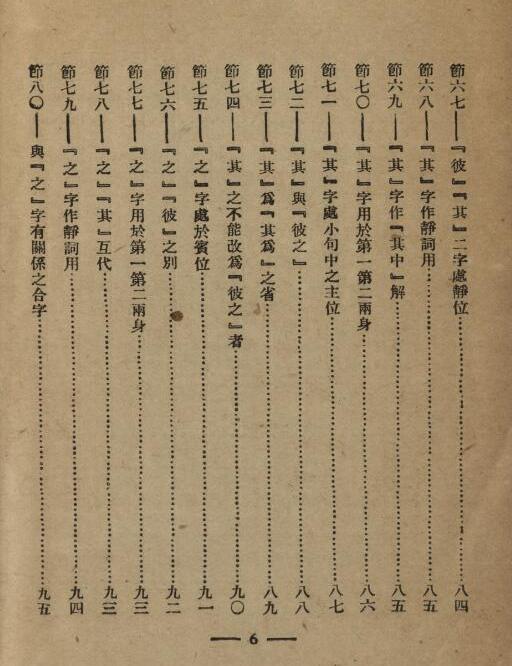 節六七——『彼』『其』二字處靜位……八四
節六八——『其』字作靜詞用……八五
節六九——『其』字作『其中』解……八五
節七〇——『其』字用於第一第二兩身……八六
節七一——『其』字處小句中之主位……八七
節七二——『其』與『彼之』……八八
節七三——『其』爲『其爲』之省……八九
節七四——『其』之不能改爲『彼之』者……九〇
節七五——『之』字處於賓位……九一
節七六——『之』『彼』之別……九二
節七七——『之』字用於第一第二兩身……九三
節七八——『之』『其』互代……九三
節七九——『之』字作靜詞用……九四
節八〇——與『之』字有關係之合字……九五
— 6 —